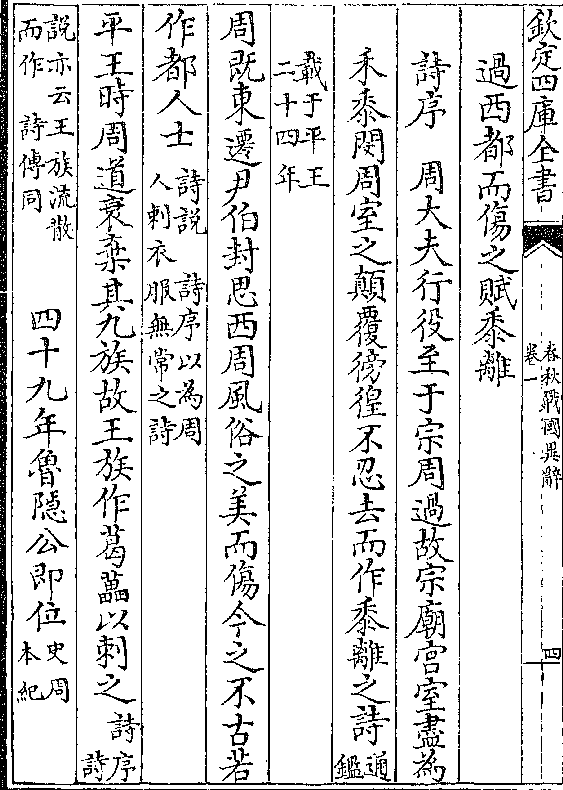 欽定四庫全書
春秋戰國異辭
卷一
四
過西都而傷之賦黍離
詩序　周大夫行役至于宗周過故宗廟宮室盡為
禾黍閔周室之顛覆徬徨不忍去而作黍離之詩通鑑
載于平王
二十四年
周既東遷尹伯封思西周風俗之美而傷今之不古若
作都人士詩說　詩序以為周
人刺衣服無常之詩
平王時周道衰棄其九族故王族作葛藟以刺之詩序
詩
說亦云王族流散
而作　詩傳同
四十九年魯隠公即位史周
本紀